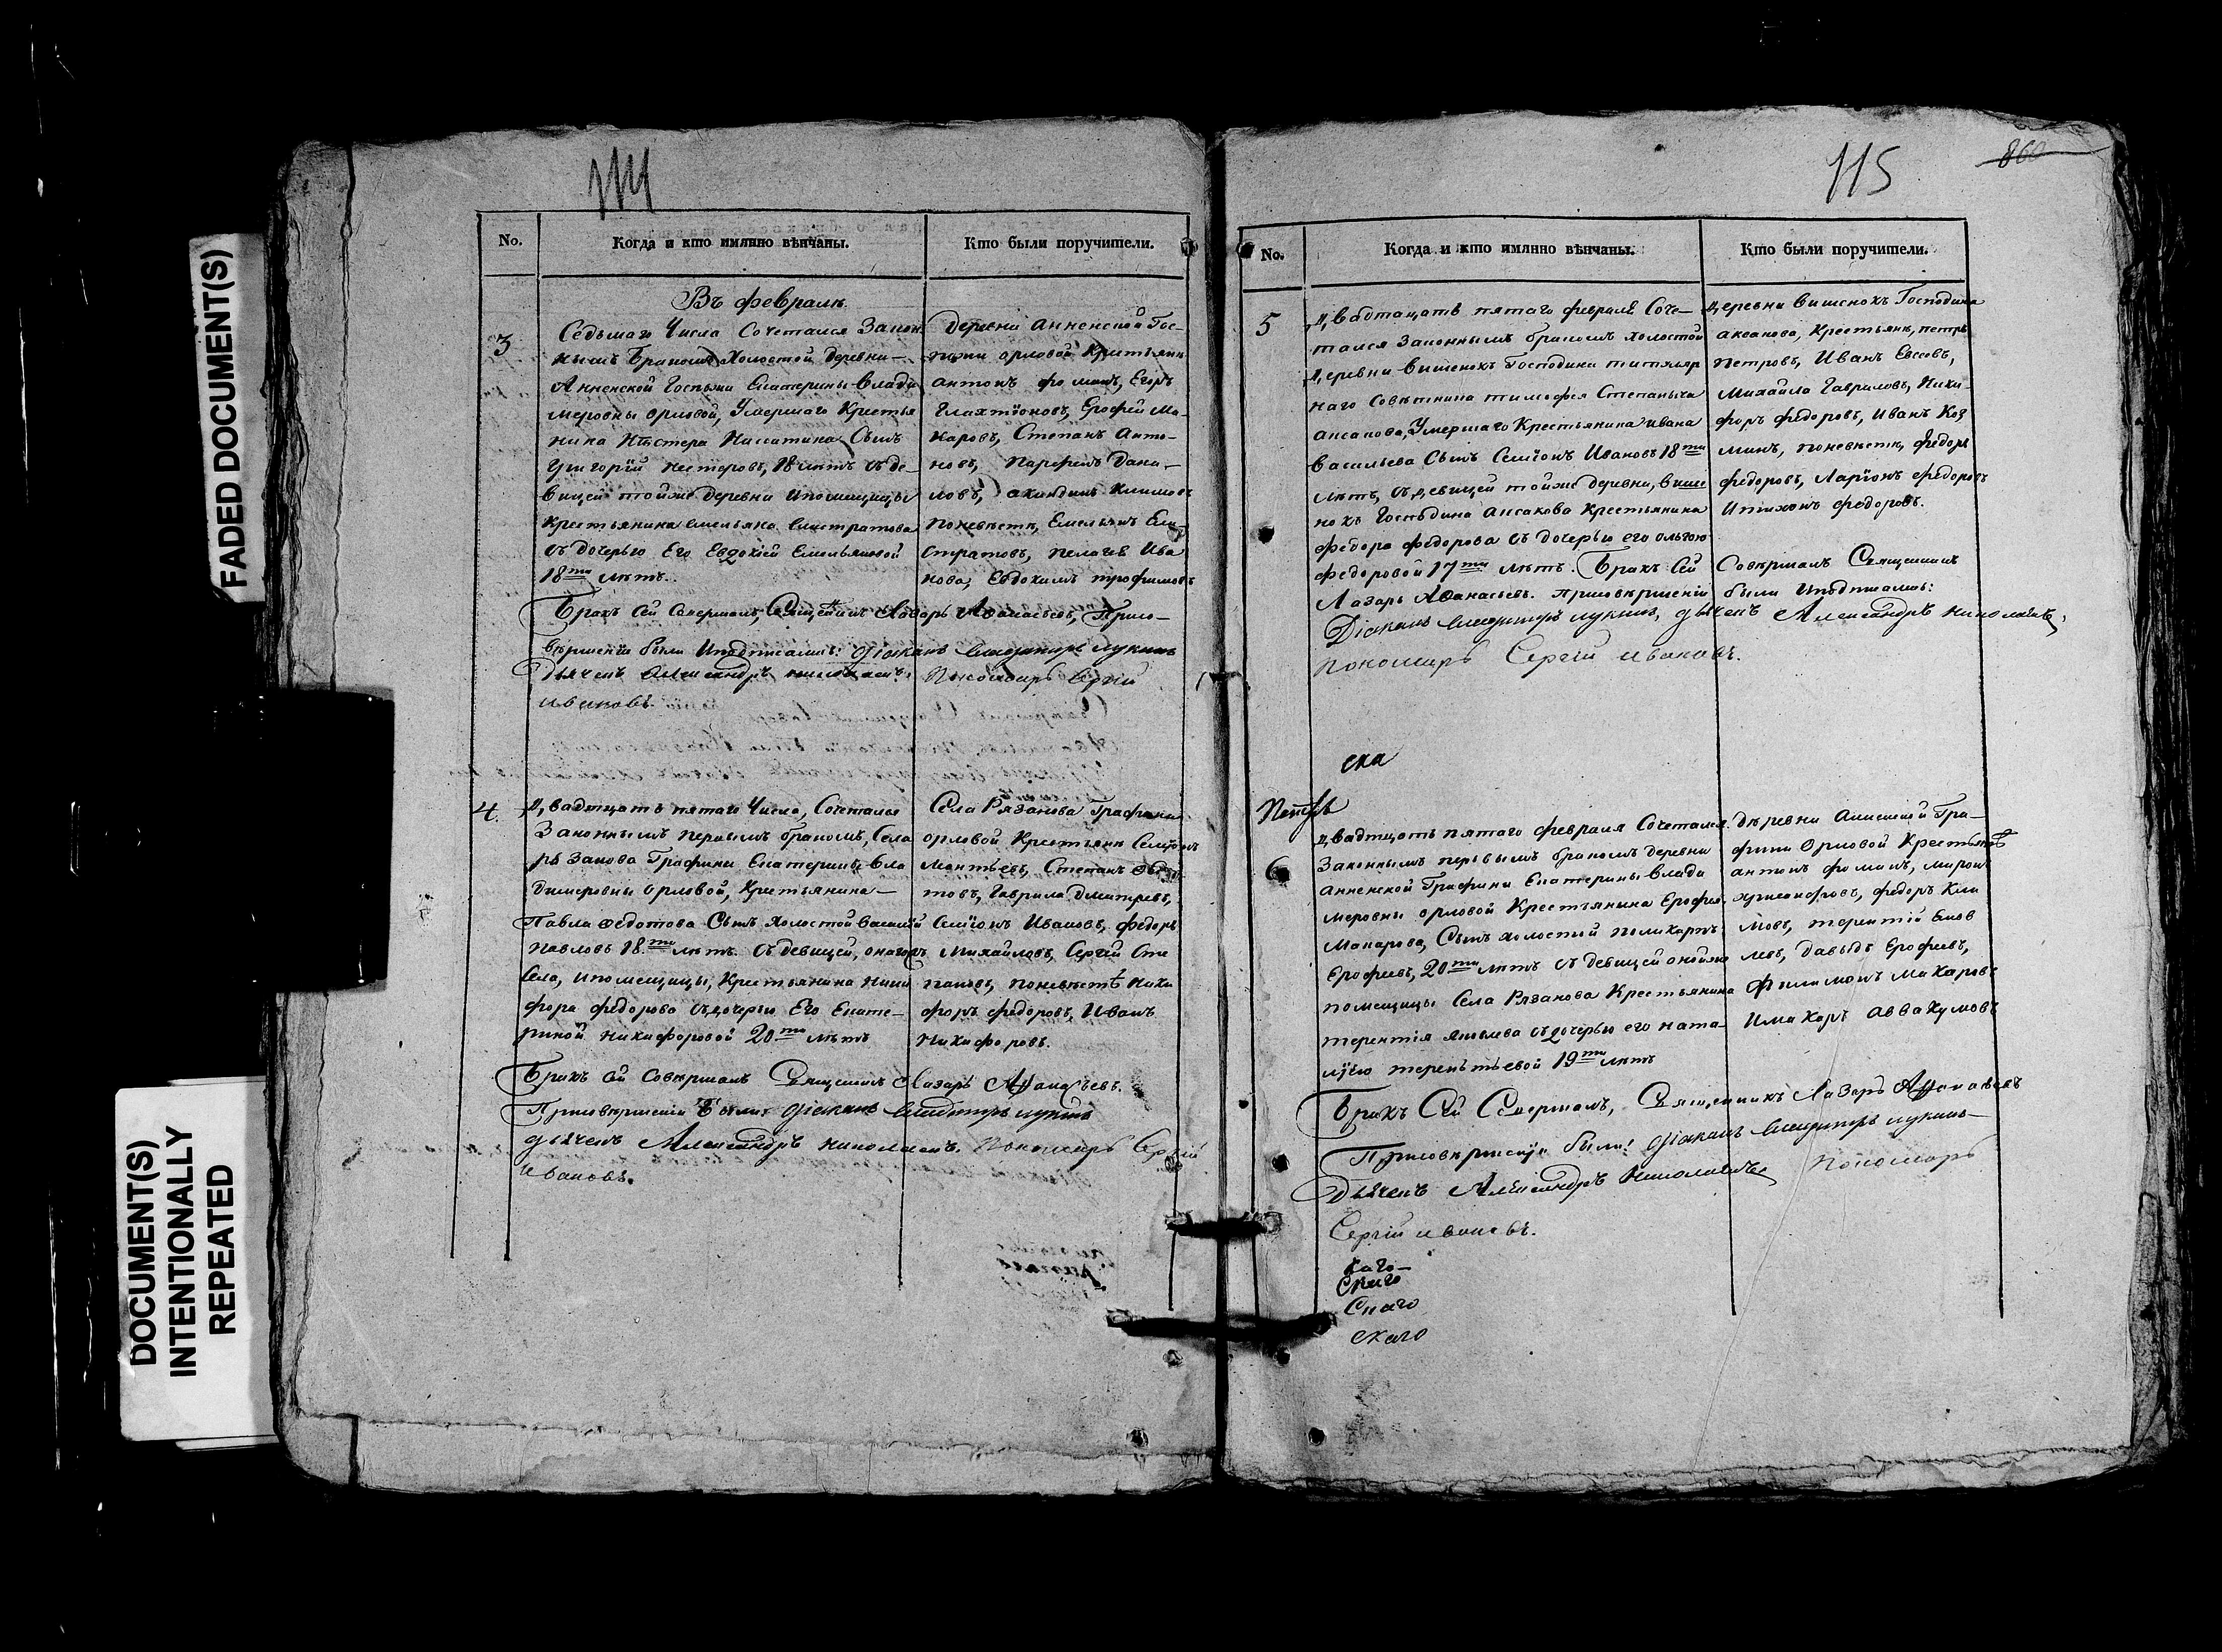 FADED DOCUMENT(S)
DOCUMENT(S)
INTENTIONALLY
REPEATED
114
No.
Когда и кто имянно вѣнчаны.
Кто были поручители.
Въ февралѣ
3
Седьмаго Числа Сочетался Закон
нымъ бракомъ Холостой деревни—
Анненской Госпожи Екатерины Влади
меровны орловой, Умершаго Крестья
нина Нестера Сынъ
Григорій нестеровъ, 18 лѣтъ съ де—
вицей тойже деревни ипомещицы
крестьянина емельяна Елистратова
съ дочерью Его Евдокіей Емельяновой
18ти лѣтъ.
деревни анненской Гос—
пожи орловой Крестьяня
антонъ фоминъ, Егоръ
Ерофей Ма—
каровъ, Степанъ Анто—
новъ, парфенъ Дани—
ловъ, акиндинъ Климовъ
поневѣстѣ, Емельянъ Ели—
стратовъ, пелагея Ива
нова, Евдокимъ трофимовъ
Бракъ сей Совершалъ, Священникъ Лазарь Афанасьевъ, Присо—
вершеніи были Иподписались: діаконъ владимиръ лукинъ
дьячекъ Александръ николаевъ. Пономарь Сергій
ивановъ.
4.
двадтцать пятаго Числа, Сочетался
Законнымъ первымъ бракомъ, Села
рязанова Графини Екатерины Вла
димеровны орловой, Крестьянина—
Павла Федотова Сынъ холостой василій
павловъ 18ти лѣтъ. съ девицей, онагожъ
Села, ипомещицы, Крестьянина Ники
фора федорова съдочерью Его Екате—
риной никифоровой 20ти лѣтъ
Села Рязанова Графини
орловой Крестьяня Семіонъ
Леонтьевъ, Степанъ Федо
товъ, Гаврила дмитревъ,
Семіонъ Ивановъ, федоръ
Михайловъ, Сергій Сте
пановъ, поневѣстѣ ники
форъ федоровъ, Иванъ
никифоровъ.
Бракъ сей Совершалъ Священникъ Лазарь Афанасьевъ.
Присовершеніи Были: діаконъ владимиръ лукинъ
дьячекъ Александръ николаевъ. Пономарь Сергій
ивановъ.
115
860
No.
Когда и кто имянно вѣнчаны.
Кто были поручители.
5
двадтцать пятаго февраля Соче—
тался Законнымъ бракомъ холостой
деревни вишенокъ Господина титуляр
наго Советника тимофея Степаныча
аксакова, Умершаго Крестьянина ивана
васильева Сынъ Семіонъ Ивановъ 18ти
лѣтъ, съдевицей тойже деревни, више
нокъ Господина аксакова крестьянина
федора федорова съ дочерью его ольгою
федоровой 17ти лѣтъ. Бракъ Сей
деревни вишенокъ Господина
аксакова, Крестьяня, петръ
петровъ, Иванъ Евсевъ,
Михайла Гавриловъ, Ники—
форъ федоровъ, Иванъ Коз
минъ, поневѣстѣ, федоръ
федоровъ, Ларіонъ федоровъ
Итихонъ федоровъ.
Совершалъ Священникъ
Лазарь Афанасьевъ. присовершеніи были Иподписались:
Діаконъ владимиръ лукинъ, дьячекъ Александръ николаевъ,
пономарь Сергій ивановъ.
ска
Петръ
6
двадтцать пятаго февраля Сочетался
Законнымъ первымъ бракомъ деревни
анненской Графини Екатерины влади
меровны орловой Крестьянина Ерофея
Макарова, Сынъ холостой поликарпъ
Ерофеевъ, 20ти лѣтъ съ девицей онойже
помещицы Села Рязанова Крестьянина
терентія яковлева съдочерью его ната—
ліею терентьевой 19ти лѣтъ
деревни анненской Гра—
фини Орловой Крестьянѣ
антонъ фоминъ, миронъ
федоръ Кли
мовъ, терентій Яков
левъ, давыдъ Ерофеевъ,
филимонъ Макаровъ
Имакаръ аввакумовъ
Бракъ Сей Совершалъ, Священникъ Лазарь Афанасьевъ
Присовершеніи были: діаконъ владимиръ лукинъ—
дьячекъ Александръ николаевъ, пономарь
Сергій ивановъ.
каго—
скаго
Скаго
скаго